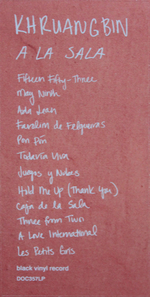 KHRUANGBIN
A LA SALA
Fifteen Fifty-Three
May Ninth
Ada Jean
Farolim de Felgueiras
Pon Pón
Todavía Viva
Juegos y Nubes
Hold Me Up (Thank You)
Caja de la Sala
Three From Two
A Love International
Les Petits Gris
black vinyl record
DOC357LP